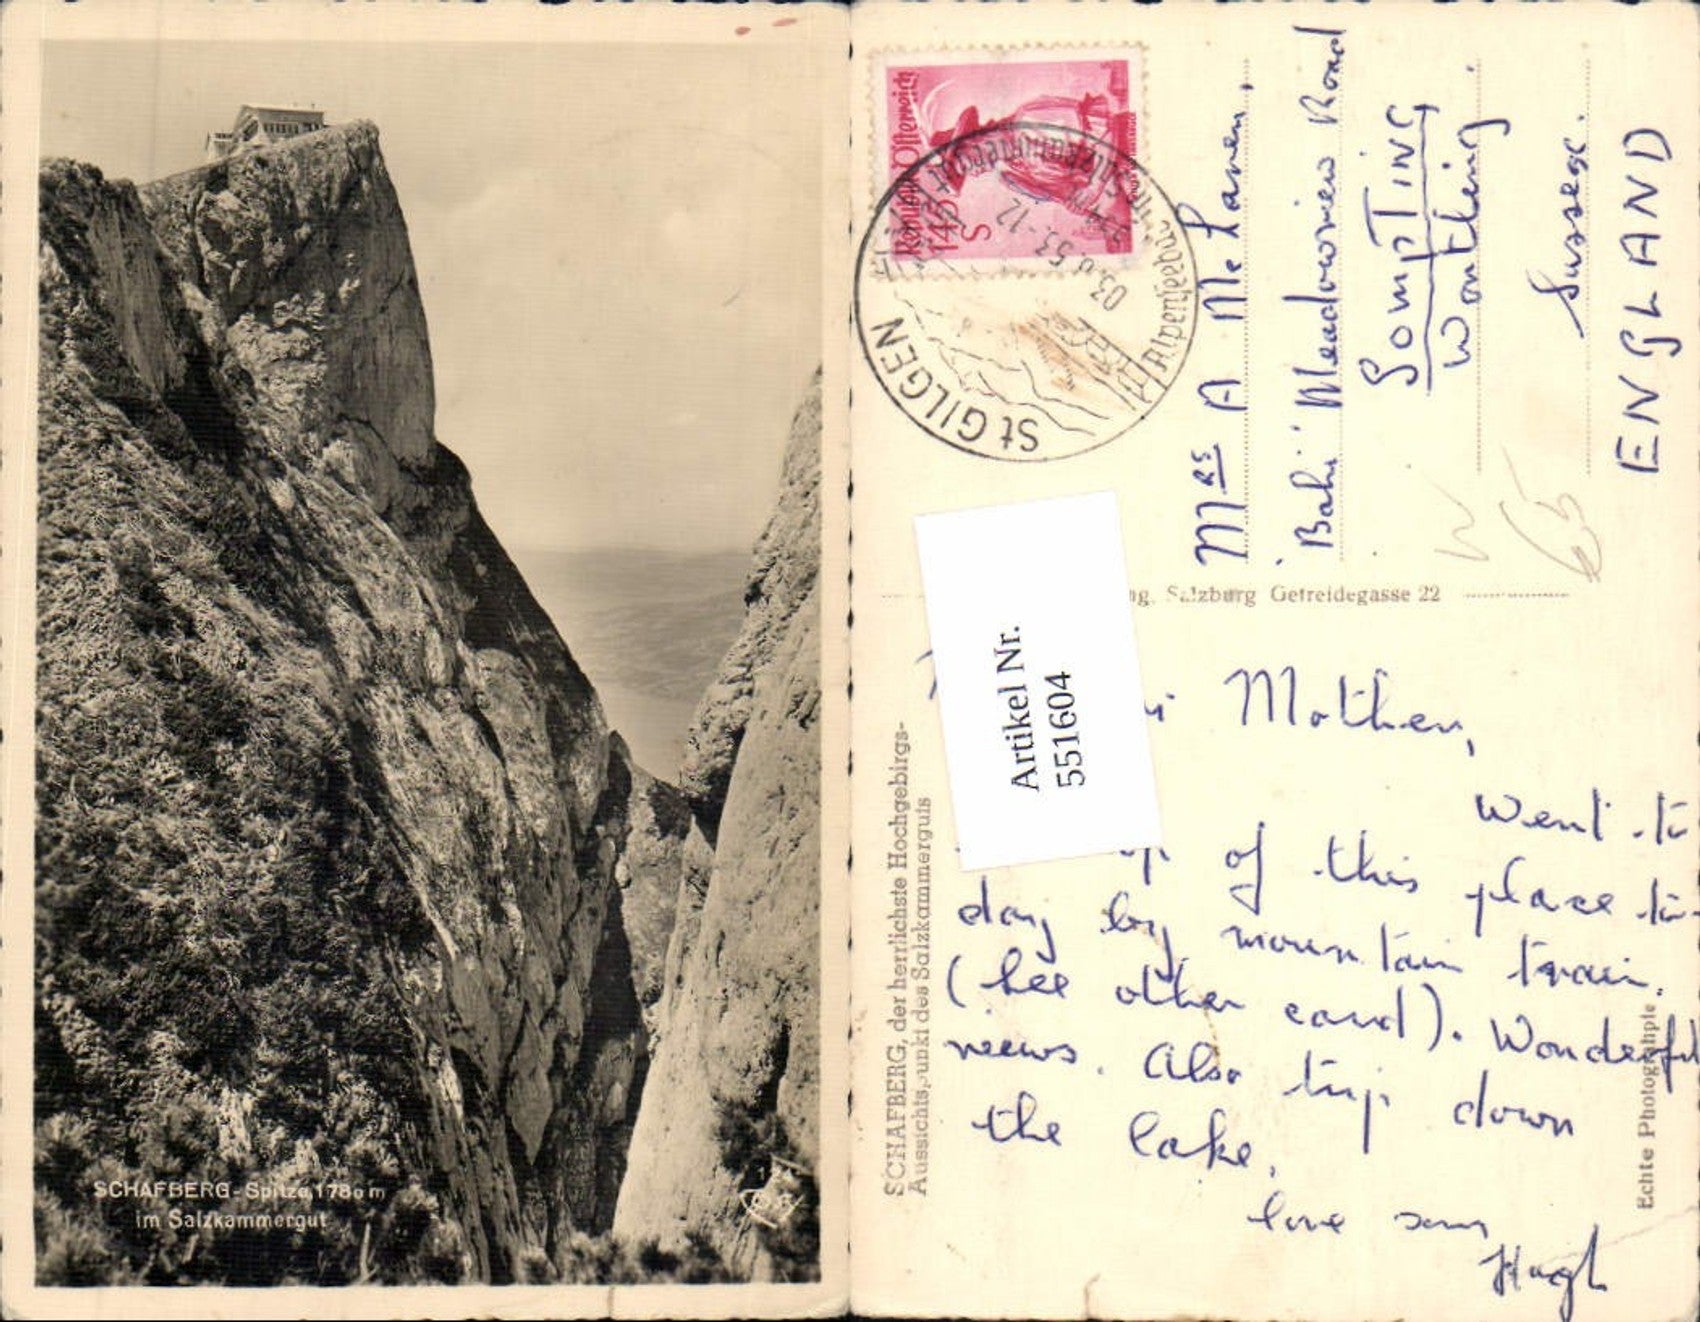 SCHAFBERG-Spitze, 1780 m
im Salzkammergut
Republik Österreich
1.45 S
St GILGEN
03. 53.-12
Mrs A Mc Laren,
'Bahi' Meadowview Road
SOMPTING
Worthing
Sussex.
ENGLAND
W
65
Salzburg Getreidegasse 22
Artikel Nr.
551604
SCHAFBERG, der herrlichste Hochgebirgs-
Aussichtspunkt des Salzkammerguts
Echte Photographie
Mother,
Went to
of this place to-
day by mountain train.
(See other card). Wonderful
views. Also trip down
the lake.
love from
Hugh